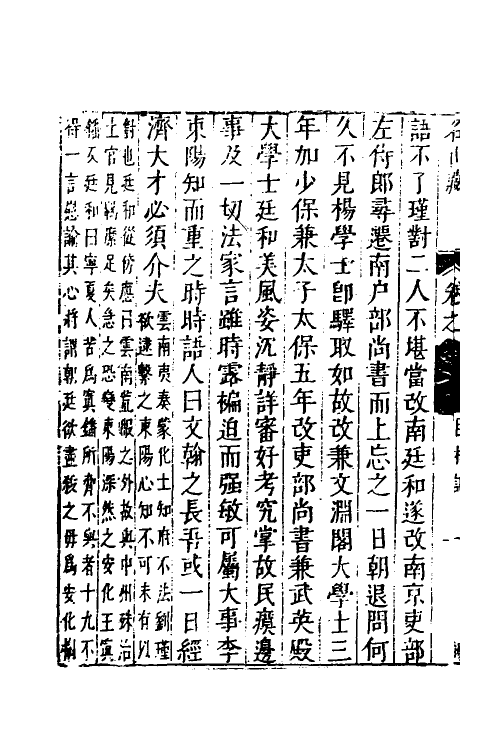 名山藏 卷之 臣林記
語不了瑾對二人不堪當改南廷和遂改南京吏部
左侍郎尋遷南户部尚書而上忘之一日朝退問何
久不見楊學士卽驛取如故改兼文淵閣大學士三
年加少保兼太子太保五年改吏部尚書兼武英殿
大學士廷和美風姿沉靜詳審好考究掌故民瘼邊
事及一切法家言雖時露褊迫而强敏可屬大事李
東陽知而重之時時語人曰文翰之長吾或一日經
濟大才必須介夫雲南夷奏蒙化土知府不法劉瑾
欲逮繫之東陽心知不可未有以
對也廷和從傍應曰雲南荒服之外故與中州殊治
土官見羈縻足矣急之恐變東陽深然之安化王寘
鐇反廷和曰寧夏人苦爲寘鐇所脅不與者十九不
得一言慰諭其心將謂朝廷欲盡殺之毋爲安化